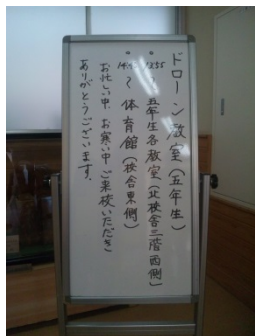 ドローン教室（五年生）
・13:55～五年生各教室（北校舎三階西側）
・14:～体育館（校舎東側）
お忙しい中、お寒い中ご来校いただき
ありがとうございます。